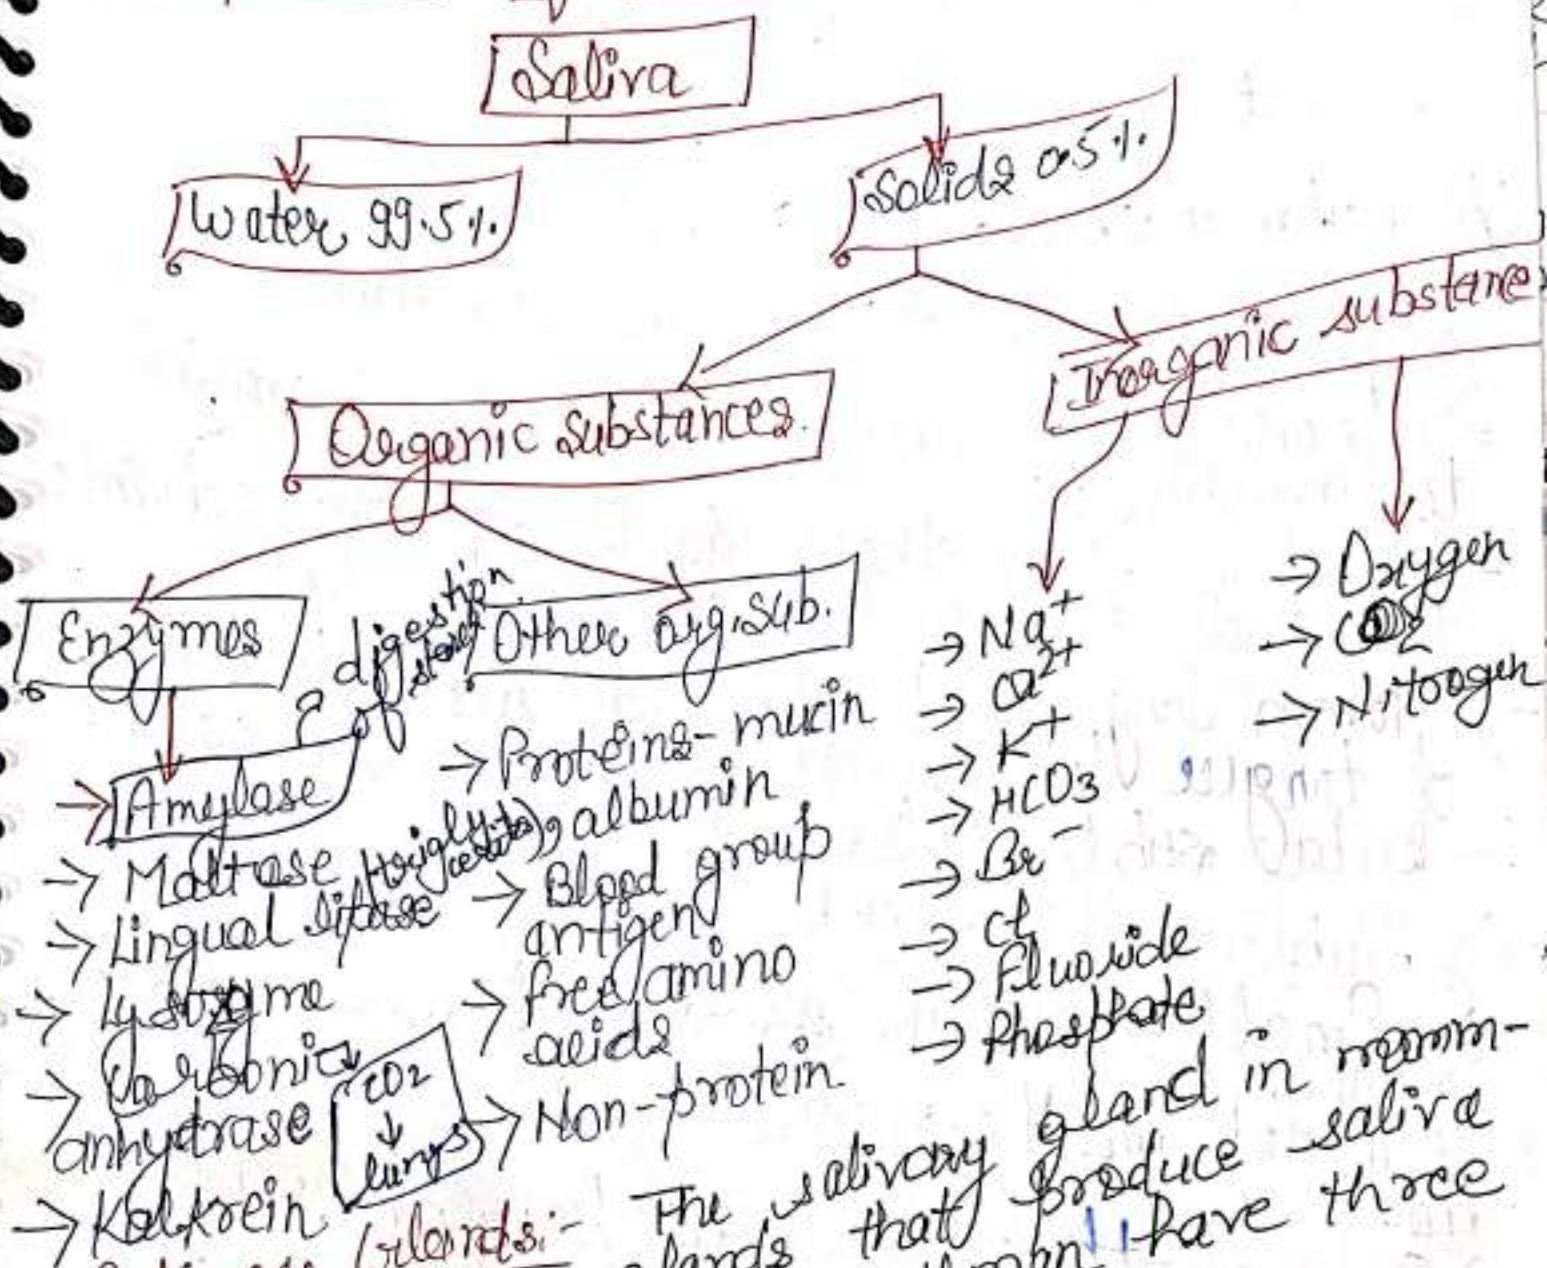 Saliva
Water 99.5%.
Solids 0.5%.
Organic substances.
Inorganic substance
Enzymes
digestion
of starch
Other org.sub.
→ Amylase
→ Maltase
→ Lingual lipase (triglycerides)
→ Lysozyme
→ Carbonic
anhydrase
CO2
↓
lungs
→ Kalkrein
→ Proteins - mucin
, albumin
→ Blood group
antigen
→ free amino
acids
→ Non-protein
→ Na+
→ Ca2+
→ K+
→ HCO3
→ Br-
→ Cl
→ Fluoride
→ Phosphate
→ Oxygen
→ CO2
→ Nitrogen
Glands:- The salivary gland in mamm-
glands that produce saliva
have three